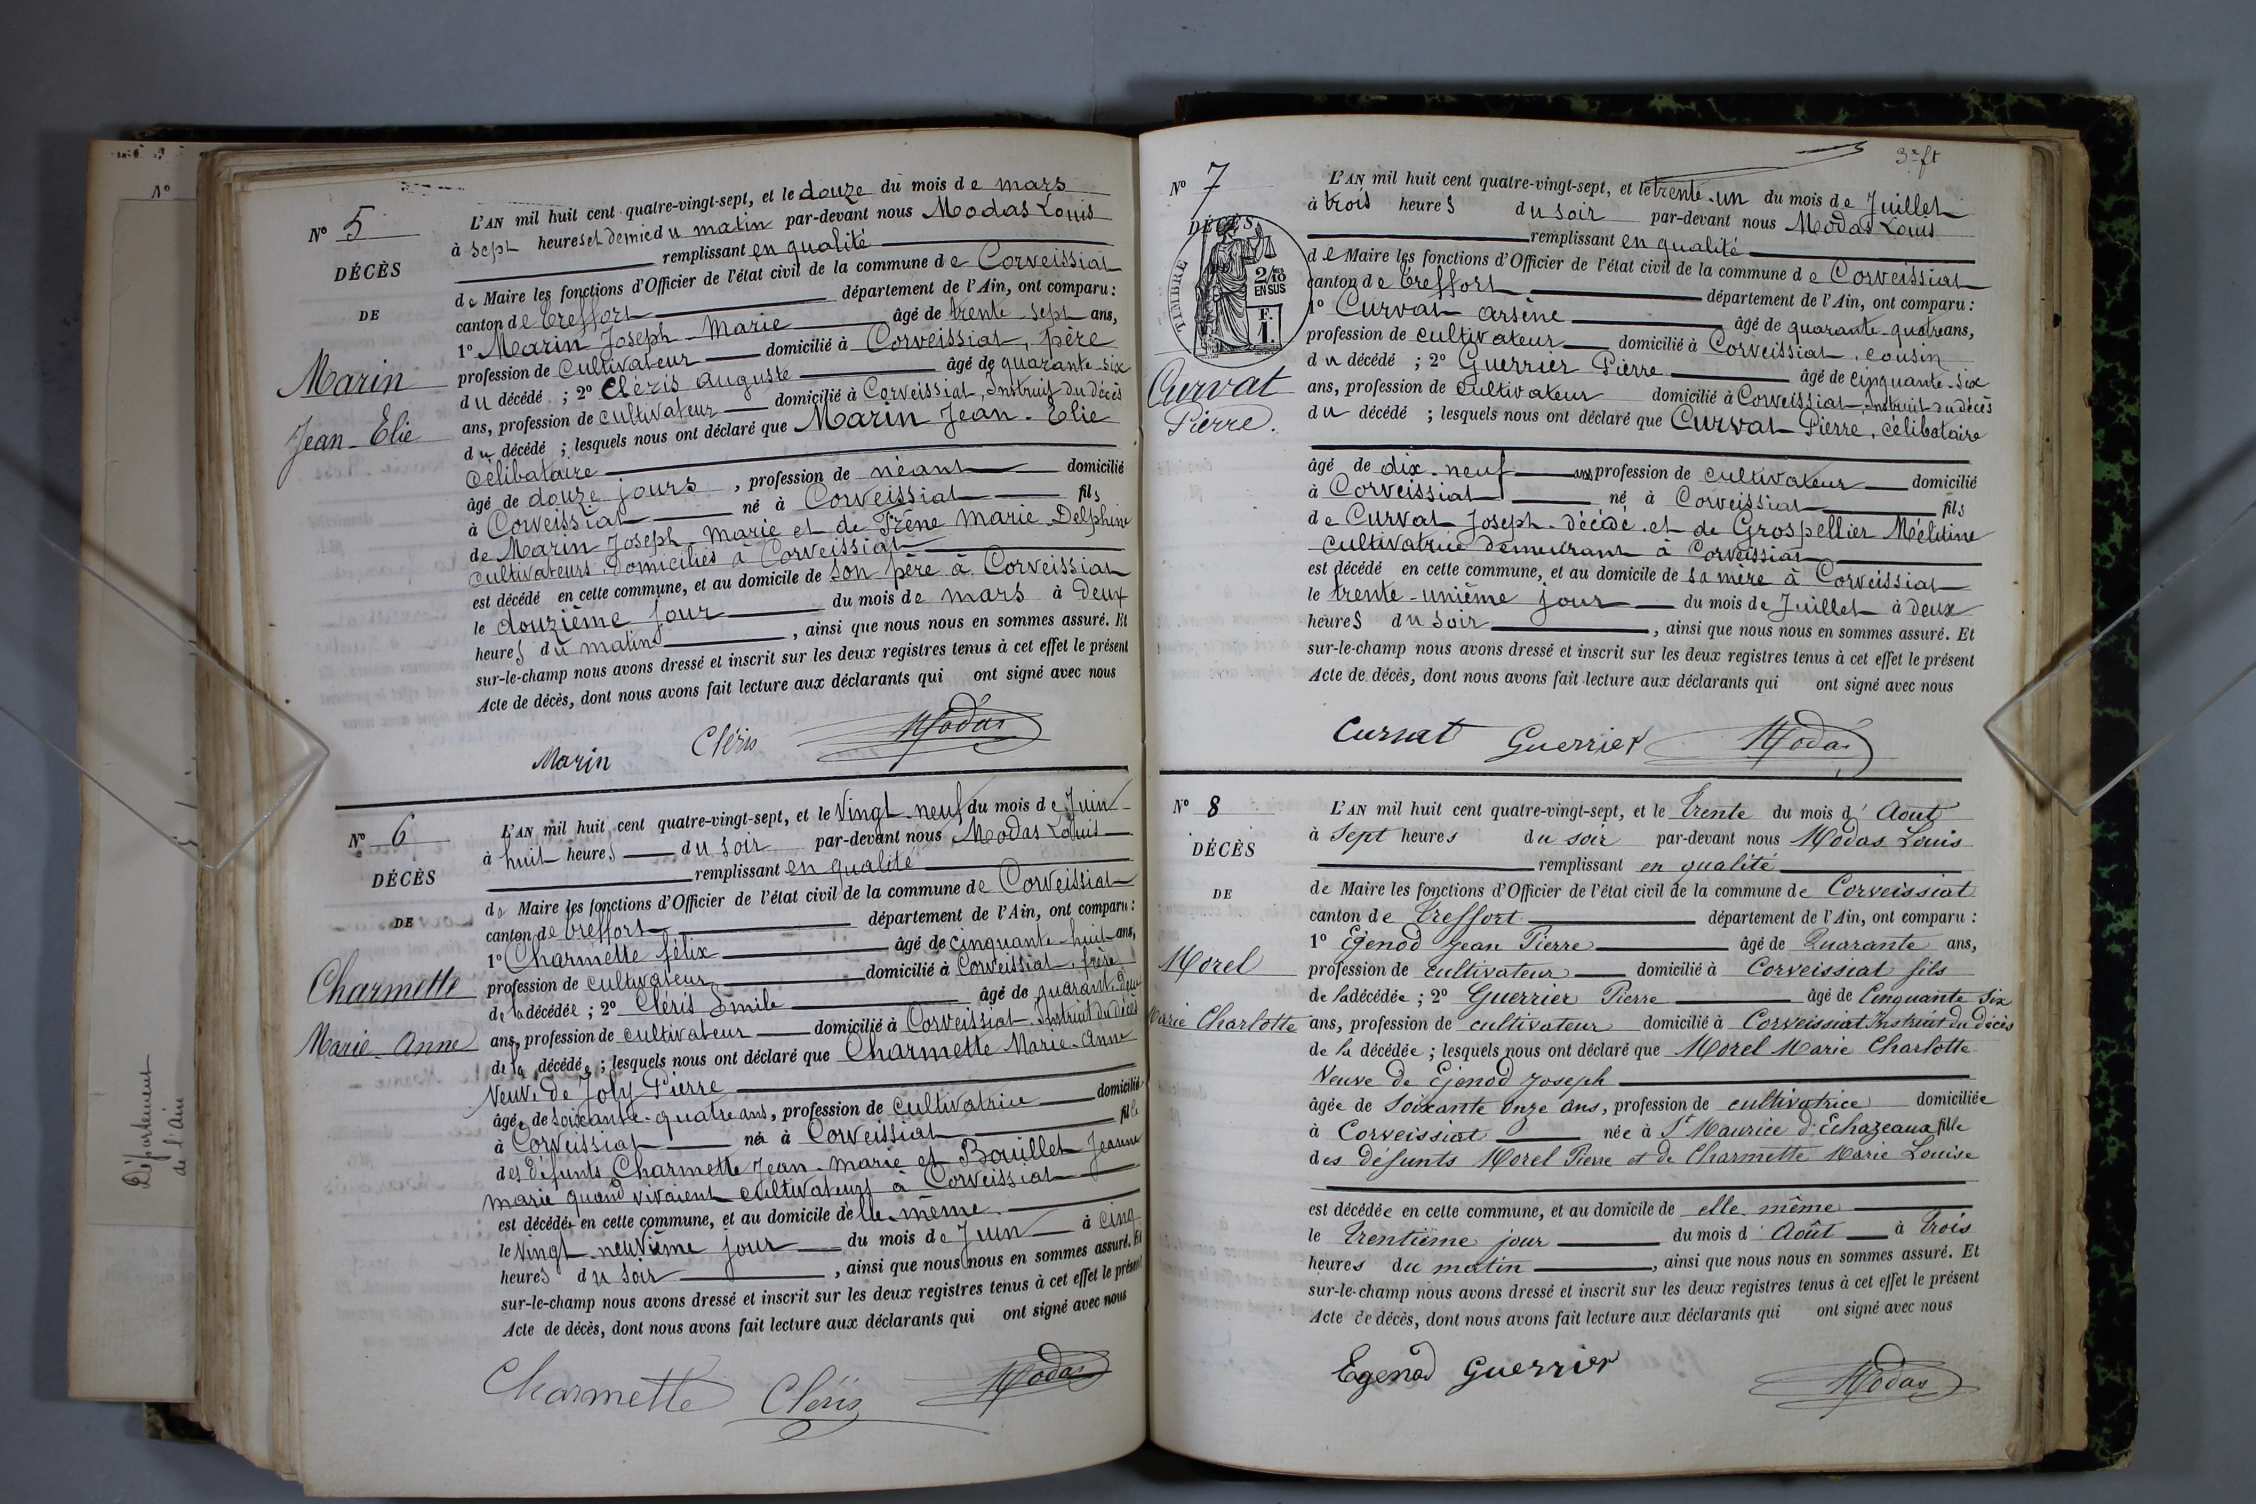 N° 5
DÉCÈS
DE
Marin
Jean-Elie
L'AN mil huit cent quatre-vingt-sept, et le douze du mois de mars
à sept heures et demie du matin par-devant nous Modas Louis
remplissant en qualité
de Maire les fonctions d'Officier de l'état civil de la commune de Corveissiat
canton de Treffort département de l'Ain, ont comparu :
1° Marin Joseph-Marie âgé de trente-sept ans,
profession de cultivateur domicilié à Corveissiat, père
du décédé ; 2° Cléris auguste âgé de quarante-six
ans, profession de cultivateur domicilié à Corveissiat, Instruit du décès
du décédé ; lesquels nous ont déclaré que Marin Jean-Elie
célibataire
âgé de douze jours, profession de néant domicilié
à Corveissiat né à Corveissiat fils
de Marin Joseph-Marie et de Frêne Marie Delphine
cultivateurs domiciliés à Corveissiat
est décédé en cette commune, et au domicile de son père à Corveissiat
le douzième jour du mois de mars à Deux
heures du matin, ainsi que nous nous en sommes assuré. Et
sur-le-champ nous avons dressé et inscrit sur les deux registres tenus à cet effet le présent
Acte de décès, dont nous avons fait lecture aux déclarants qui ont signé avec nous
Marin Cléris Modas
N° 6
DÉCÈS
DE
Charmette
Marie-Anne
L'AN mil huit cent quatre-vingt-sept, et le Vingt-neuf du mois de Juin
à huit heures du soir par-devant nous Modas Louis
remplissant en qualité
de Maire les fonctions d'Officier de l'état civil de la commune de Corveissiat
canton de Treffort département de l'Ain, ont comparu :
1° Charmette félix âgé de cinquante-huit ans,
profession de cultivateur domicilié à Corveissiat, frère
de la décédée ; 2° Cléris Émile âgé de quarante-deux
ans, profession de cultivateur domicilié à Corveissiat, Instruit du décès
de la décédée ; lesquels nous ont déclaré que Charmette Marie-Anne
Veuve de Joly Pierre
âgée de soixante-quatre ans, profession de cultivatrice domiciliée
à Corveissiat née à Corveissiat fille
des défunts Charmette Jean-Marie et Bouillet Jeanne
marie quand vivaient cultivateurs à Corveissiat
est décédée en cette commune, et au domicile d'elle-même
le Vingt-neuvième jour du mois de Juin à cinq
heures du soir, ainsi que nous nous en sommes assuré. Et
sur-le-champ nous avons dressé et inscrit sur les deux registres tenus à cet effet le présent
Acte de décès, dont nous avons fait lecture aux déclarants qui ont signé avec nous
Charmette Cléris Modas
Département
de l'Ain
3e ft
N° 7
DÉCÈS
TIMBRE
2/10 EN SUS
F. 1.
Curvat
Pierre.
L'AN mil huit cent quatre-vingt-sept, et le trente-un du mois de Juillet
à trois heures du soir par-devant nous Modas Louis
remplissant en qualité
de Maire les fonctions d'Officier de l'état civil de la commune de Corveissiat
canton de Treffort département de l'Ain, ont comparu :
1° Curvat arsène âgé de quarante-quatre ans,
profession de cultivateur domicilié à Corveissiat, cousin
du décédé ; 2° Guerrier Pierre âgé de cinquante-six
ans, profession de cultivateur domicilié à Corveissiat, Instruit du décès
du décédé ; lesquels nous ont déclaré que Curvat Pierre, célibataire
âgé de dix-neuf ans profession de cultivateur domicilié
à Corveissiat né à Corveissiat fils
de Curvat Joseph-décédé et de Grospellier Mélitine
cultivatrice demeurant à Corveissiat
est décédé en cette commune, et au domicile de sa mère à Corveissiat
le trente-unième jour du mois de Juillet à deux
heures du soir, ainsi que nous nous en sommes assuré. Et
sur-le-champ nous avons dressé et inscrit sur les deux registres tenus à cet effet le présent
Acte de décès, dont nous avons fait lecture aux déclarants qui ont signé avec nous
Curvat Guerrier Modas
N° 8
DÉCÈS
DE
Morel
Marie Charlotte
L'AN mil huit cent quatre-vingt-sept, et le Trente du mois d'Août
à Sept heures du soir par-devant nous Modas Louis
remplissant en qualité
de Maire les fonctions d'Officier de l'état civil de la commune de Corveissiat
canton de Treffort département de l'Ain, ont comparu :
1° Egenod Jean Pierre âgé de Quarante ans,
profession de cultivateur domicilié à Corveissiat fils
de la décédée ; 2° Guerrier Pierre âgé de Cinquante Six
ans, profession de cultivateur domicilié à Corveissiat Instruit du décès
de la décédée ; lesquels nous ont déclaré que Morel Marie Charlotte
Veuve de Egenod Joseph
âgée de Soixante Onze ans, profession de cultivatrice domiciliée
à Corveissiat née à St Maurice d'Échazeaux fille
des défunts Morel Pierre et de Charmette Marie Louise
est décédée en cette commune, et au domicile de elle même
le Trentième jour du mois d'Août à Trois
heures du matin, ainsi que nous nous en sommes assuré. Et
sur-le-champ nous avons dressé et inscrit sur les deux registres tenus à cet effet le présent
Acte de décès, dont nous avons fait lecture aux déclarants qui ont signé avec nous
Egenod Guerrier Modas